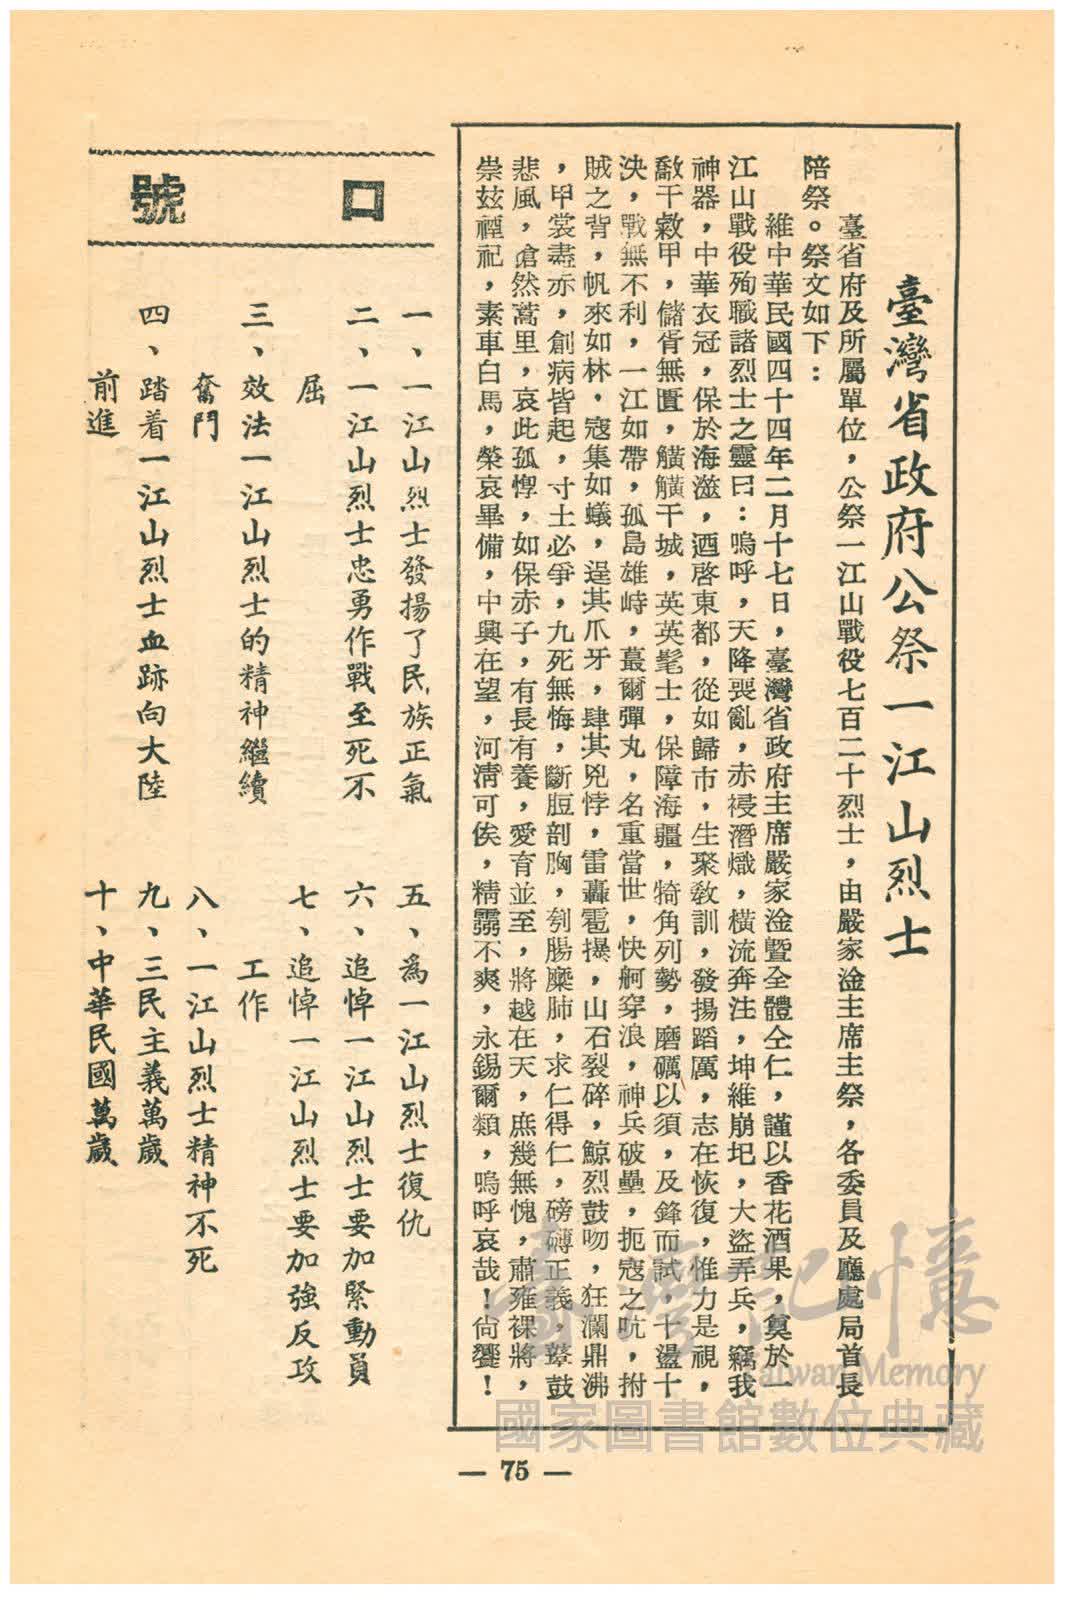 臺灣省政府公祭一江山烈士
臺省府及所屬單位，公祭一江山戰役七百二十烈士，由嚴家淦主席主祭，各委員及廳處局首長
陪祭。祭文如下：
維中華民國四十四年二月十七日，臺灣省政府主席嚴家淦暨全體仝仁，謹以香花酒果，奠於一
江山戰役殉職諸烈士之靈曰：嗚呼，天降喪亂，赤祲潛熾，橫流奔注，坤維崩圮，大盜弄兵，竊我
神器，中華衣冠，保於海澨，迺啓東都，從如歸市，生聚教訓，發揚蹈厲，志在恢復，惟力是視，
敿干敹甲，儲胥無匱，觥觥干城，英英髦士，保障海疆，犄角列勢，磨礪以須，及鋒而試，十盪十
決，戰無不利，一江如帶，孤島雄峙，蕞爾彈丸，名重當世，快舸穿浪，神兵破壘，扼寇之吭，拊
賊之背，帆來如林，寇集如蟻，逞其爪牙，肆其兇悖，雷轟雹㩧，山石裂碎，鯨烈鼓吻，狂瀾鼎沸
，甲裳盡赤，創病皆起，寸土必爭，九死無悔，斷脰剖胸，刳腸糜肺，求仁得仁，磅礡正義，鼙鼓
悲風，愴然蒿里，哀此孤惸，如保赤子，有長有養，愛育並至，將越在天，庶幾無愧，肅雍祼將，
崇玆禋祀，素車白馬，榮哀畢備，中興在望，河淸可俟，精靈不爽，永錫爾類，嗚呼哀哉！尙饗！
口號
一、一江山烈士發揚了民族正氣
二、一江山烈士忠勇作戰至死不
屈
三、效法一江山烈士的精神繼續
奮鬥
四、踏着一江山烈士血跡向大陸
前進
五、爲一江山烈士復仇
六、追悼一江山烈士要加緊動員
七、追悼一江山烈士要加強反攻
工作
八、一江山烈士精神不死
九、三民主義萬歲
十、中華民國萬歲
— 75 —
臺灣記憶
Taiwan Memory
國家圖書館數位典藏